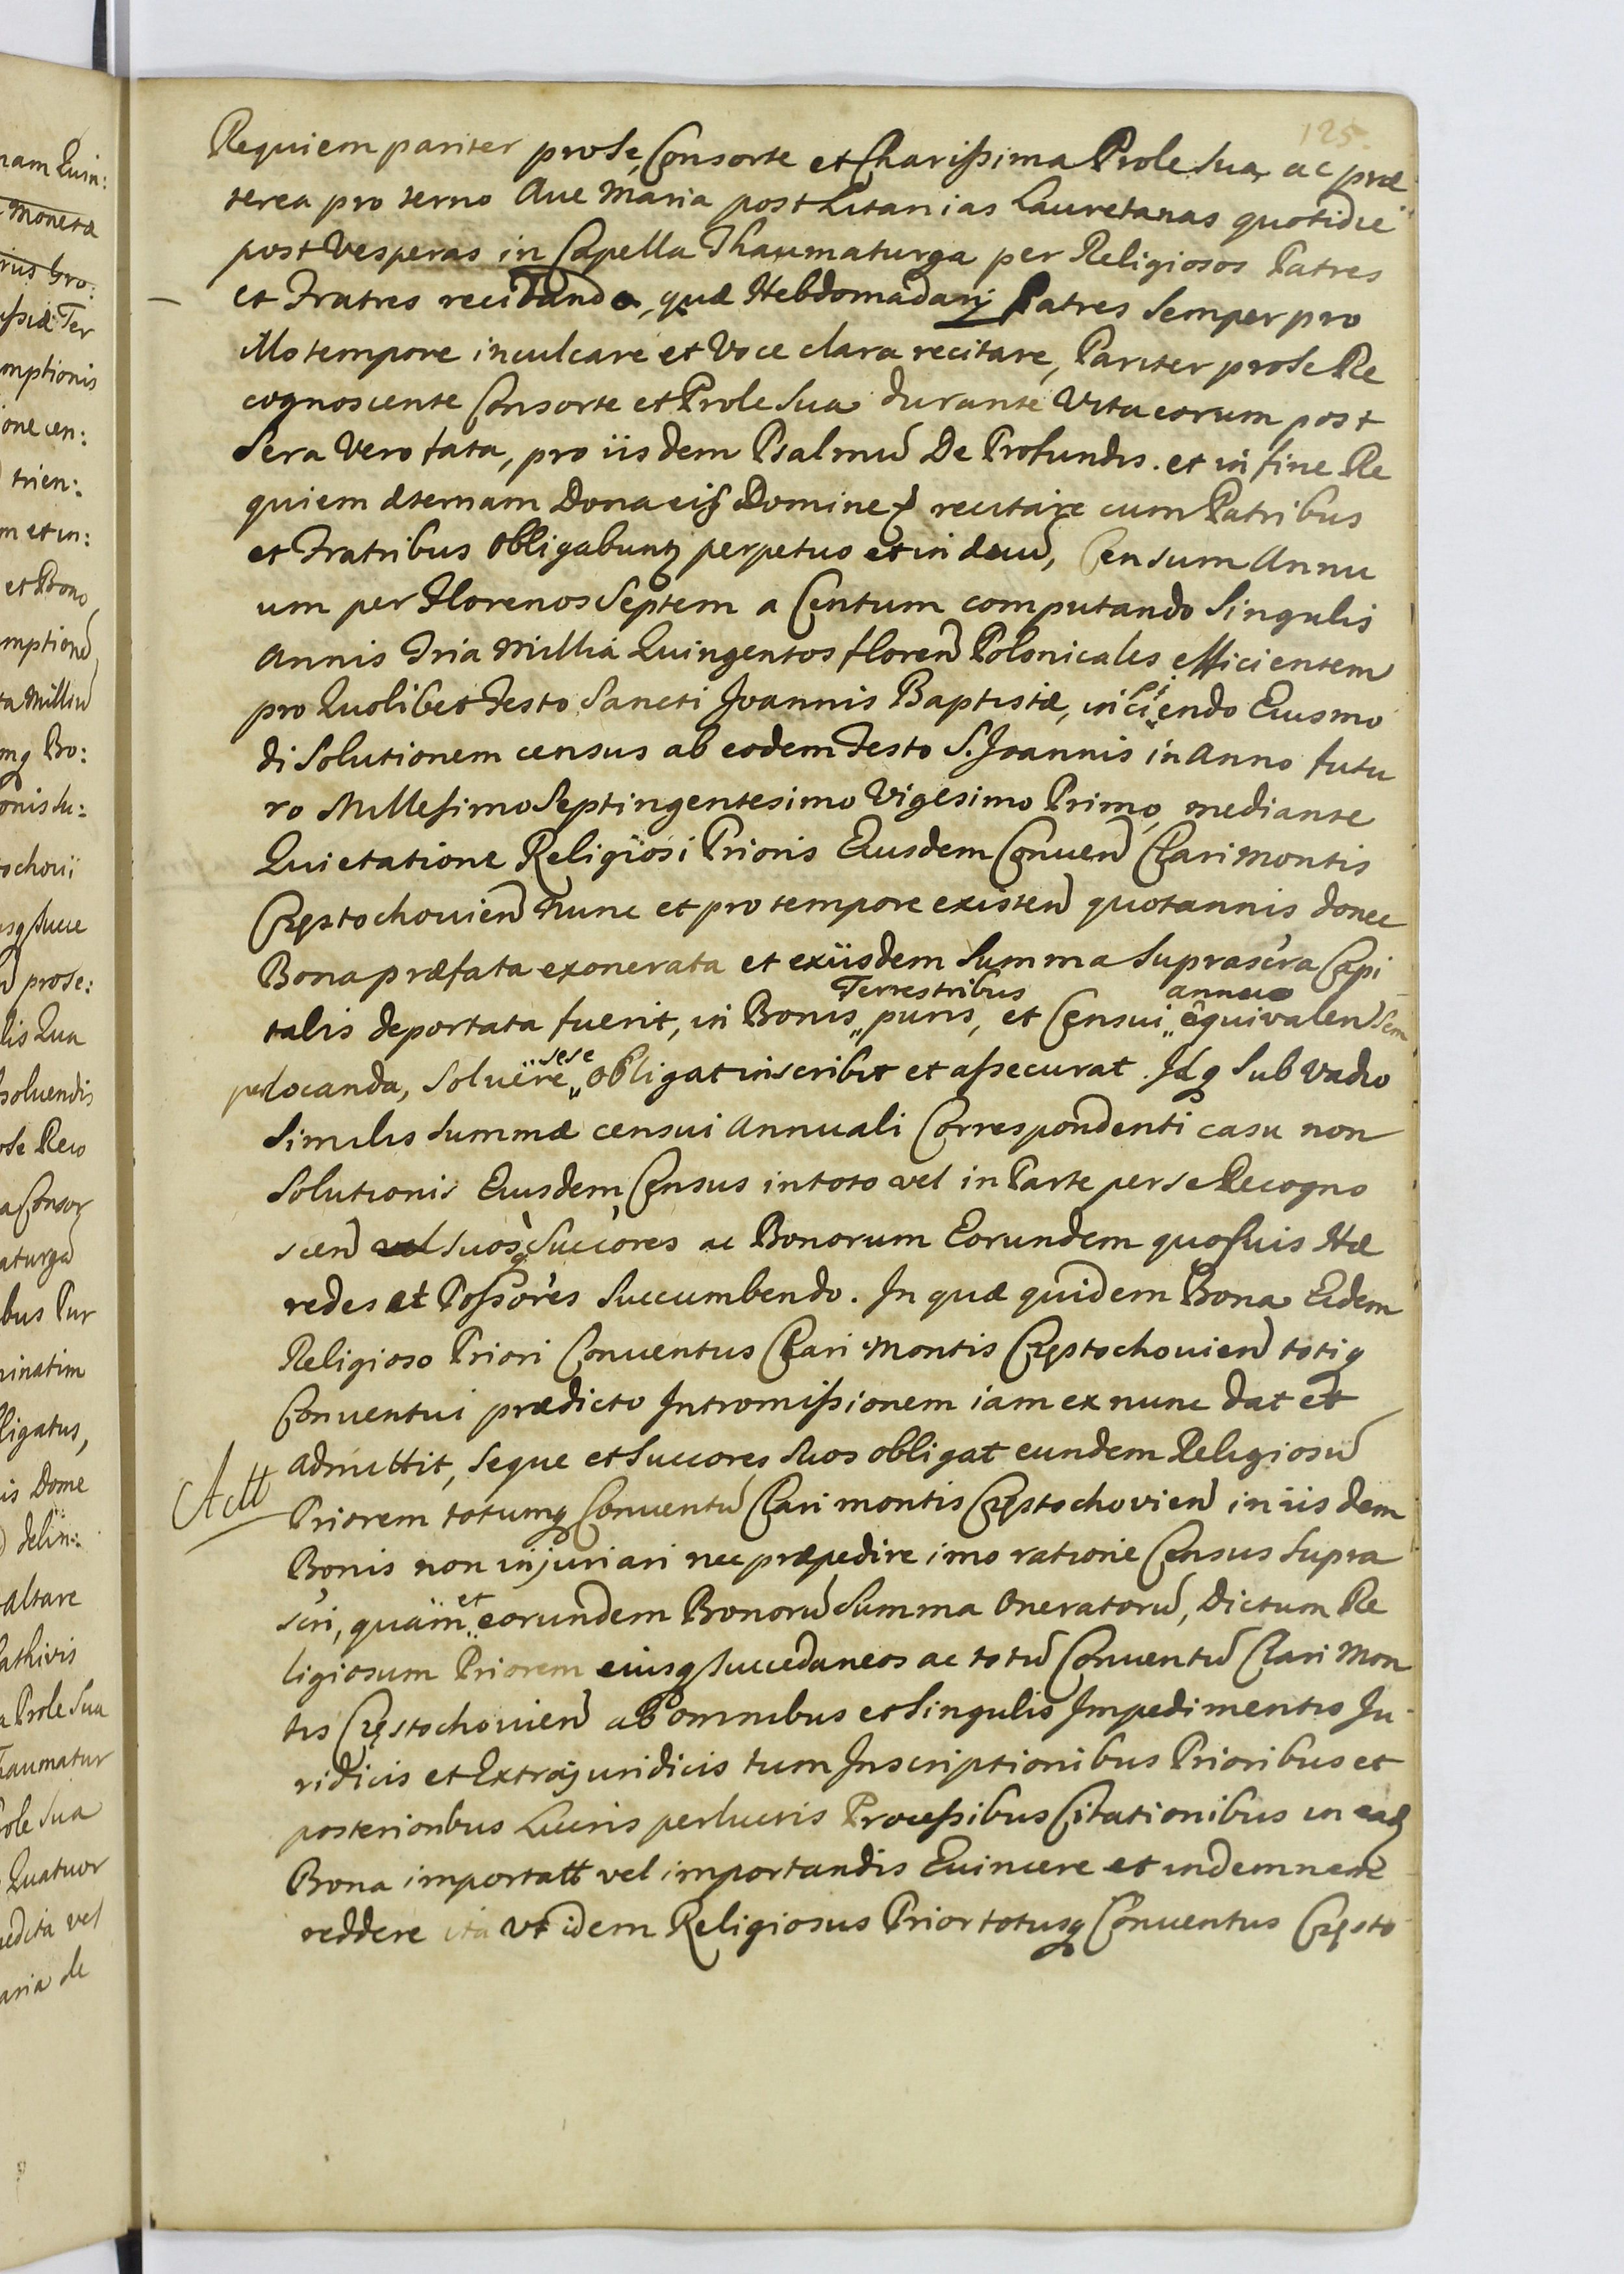 125.
Requiem pariter pro se, Consorte et Charissima Prole sua, ac præ
terea pro terno Ave Maria post Litanias Lauretanas quotidie
post Vesperas in Capella Thaumaturga per Religiosos Patres
et Fratres recitando, quæ Hebdomadarij Patres semper pro
illo tempore inculcare et Voce clara recitare, Pariter pro se Re
cognoscente Consorte et Prole sua durante Vita eorum post
Sera Vero fata, pro iisdem Psalmũ De Profundis. et in fine Re
quiem æternam Dona eis Domine recitare cum Patribus
et Fratribus obligabuntur perpetuo et in ævũ, Censum Annu
um per Florenos Septem a Centum computando Singulis
Annis Tria Millia Quingentos floreñ Polonicales efficientem
pro Quolibet Festo Sancti Joannis Baptistæ, incipiendo Eiusmo
di Solutionem census ab eodem Festo S. Joannis in Anno futu
ro Millesimo Septingentesimo Vigesimo Primo, mediante
Quietatione Religiosi Prioris Eiusdem Conueñ Clari Montis
Częstochouieñ nunc et pro tempore existeñ quotannis donec
Bona præfata exonerata et ex iisdem Summa suprascra Capi
talis deportata fuerit, in Bonis Terrestribus puris, et Censui annuo equivaleñ sem
per locanda, soluere sese obligat inscribit et assecurat. Idq sub vadio
Similis Summæ censui Annuali Correspondenti casu non
Solutionis Eiusdem Census in toto vel in Parte per se Recogno
sceñ vel suosq Succores ac Bonorum Eorundem quosuis Hæ
redes et Possores succumbendo. In quæ quidem Bona Eidem
Religioso Priori Conventus Clari Montis Częstochouieñ totiq
Conuentui prædicto Intromissionem iam ex nunc dat et
admittit, seque et Succores suos obligat eundem Religiosũ
Priorem totumq Conventũ Clari montis Częstochovieñ in iisdem
Bonis non injuriari nec præpedire imo ratione Census supra
scri, quam et eorundem Bonorũ Summa Oneratorũ, Dictum Re
ligiosum Priorem eiusq succedaneos ac totũ Conuentũ Clari Mon
tis Częstochouieñ ab omnibus et singulis Impedimentis Ju
ridicis et Extrajuridicis tum Inscriptionibus Prioribus et
posterioribus Lucris perlucris Processibus Citationibus in eadem
Bona importatt vel importandis Euincere et indemnem
reddere ita vt idem Religiosus Prior totusq Conuentus Często